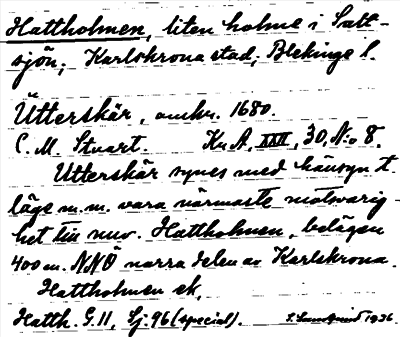 Hattholmen, liten holme i Salt-
sjön; Karlskrona stad; Blekinge l.
Ütterskär, omkr. 1680.
C. M. Stuart. Kr. A, XXII, 30, N:o 8.
Utterskär synes med hänsyn t.
läge m.m. vara närmaste motsvarig-
het till nuv. Hattholmen, belägen
400 m. NNÖ norra delen av Karlskrona.
Hattholmen ek.
Hatth. G. 11, Sj. 96 (special). 1936